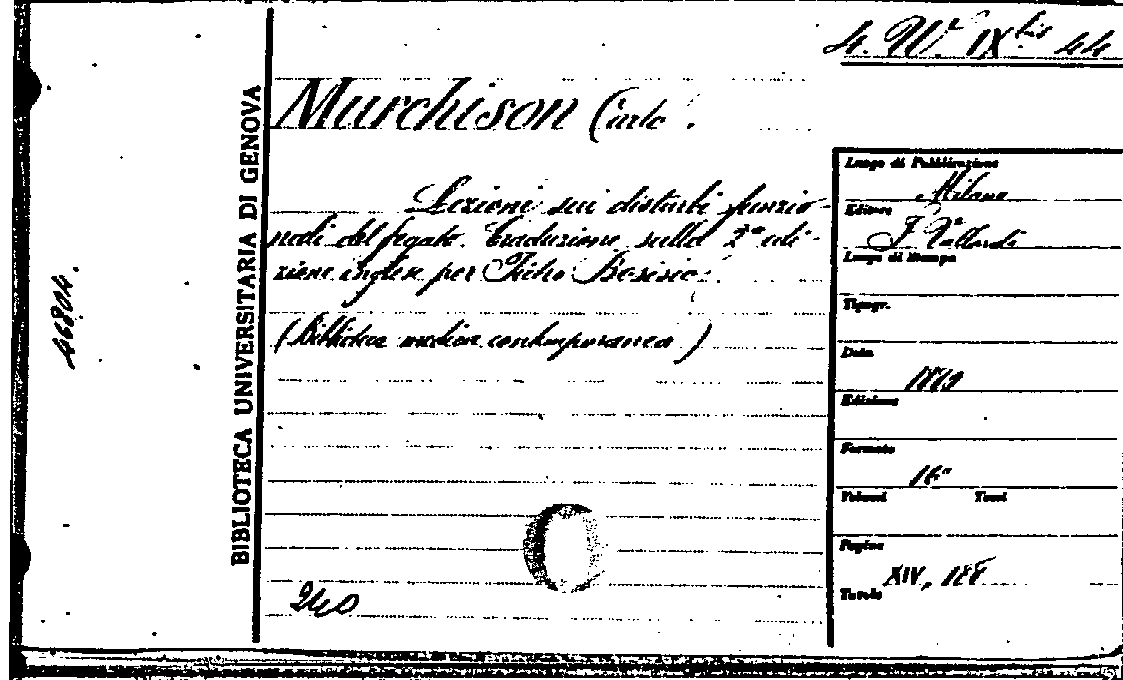 4. W. IX bis 44
Murchison Carlo.
Lezioni sui disturbi funzio-
nali del fegato. Traduzione sulla 2ª edi-
zione inglese per Pietro Bosisio.
(Biblioteca medica contemporanea)
240
46804.
BIBLIOTECA UNIVERSITARIA DI GENOVA
Luogo di Pubblicazione
Milano
Editore
F. Vallardi
Luogo di Stampa
Tipogr.
Data
Edizione
Formato
16°
Volumi Tomi
Pagine
XIV, 188
Tavole